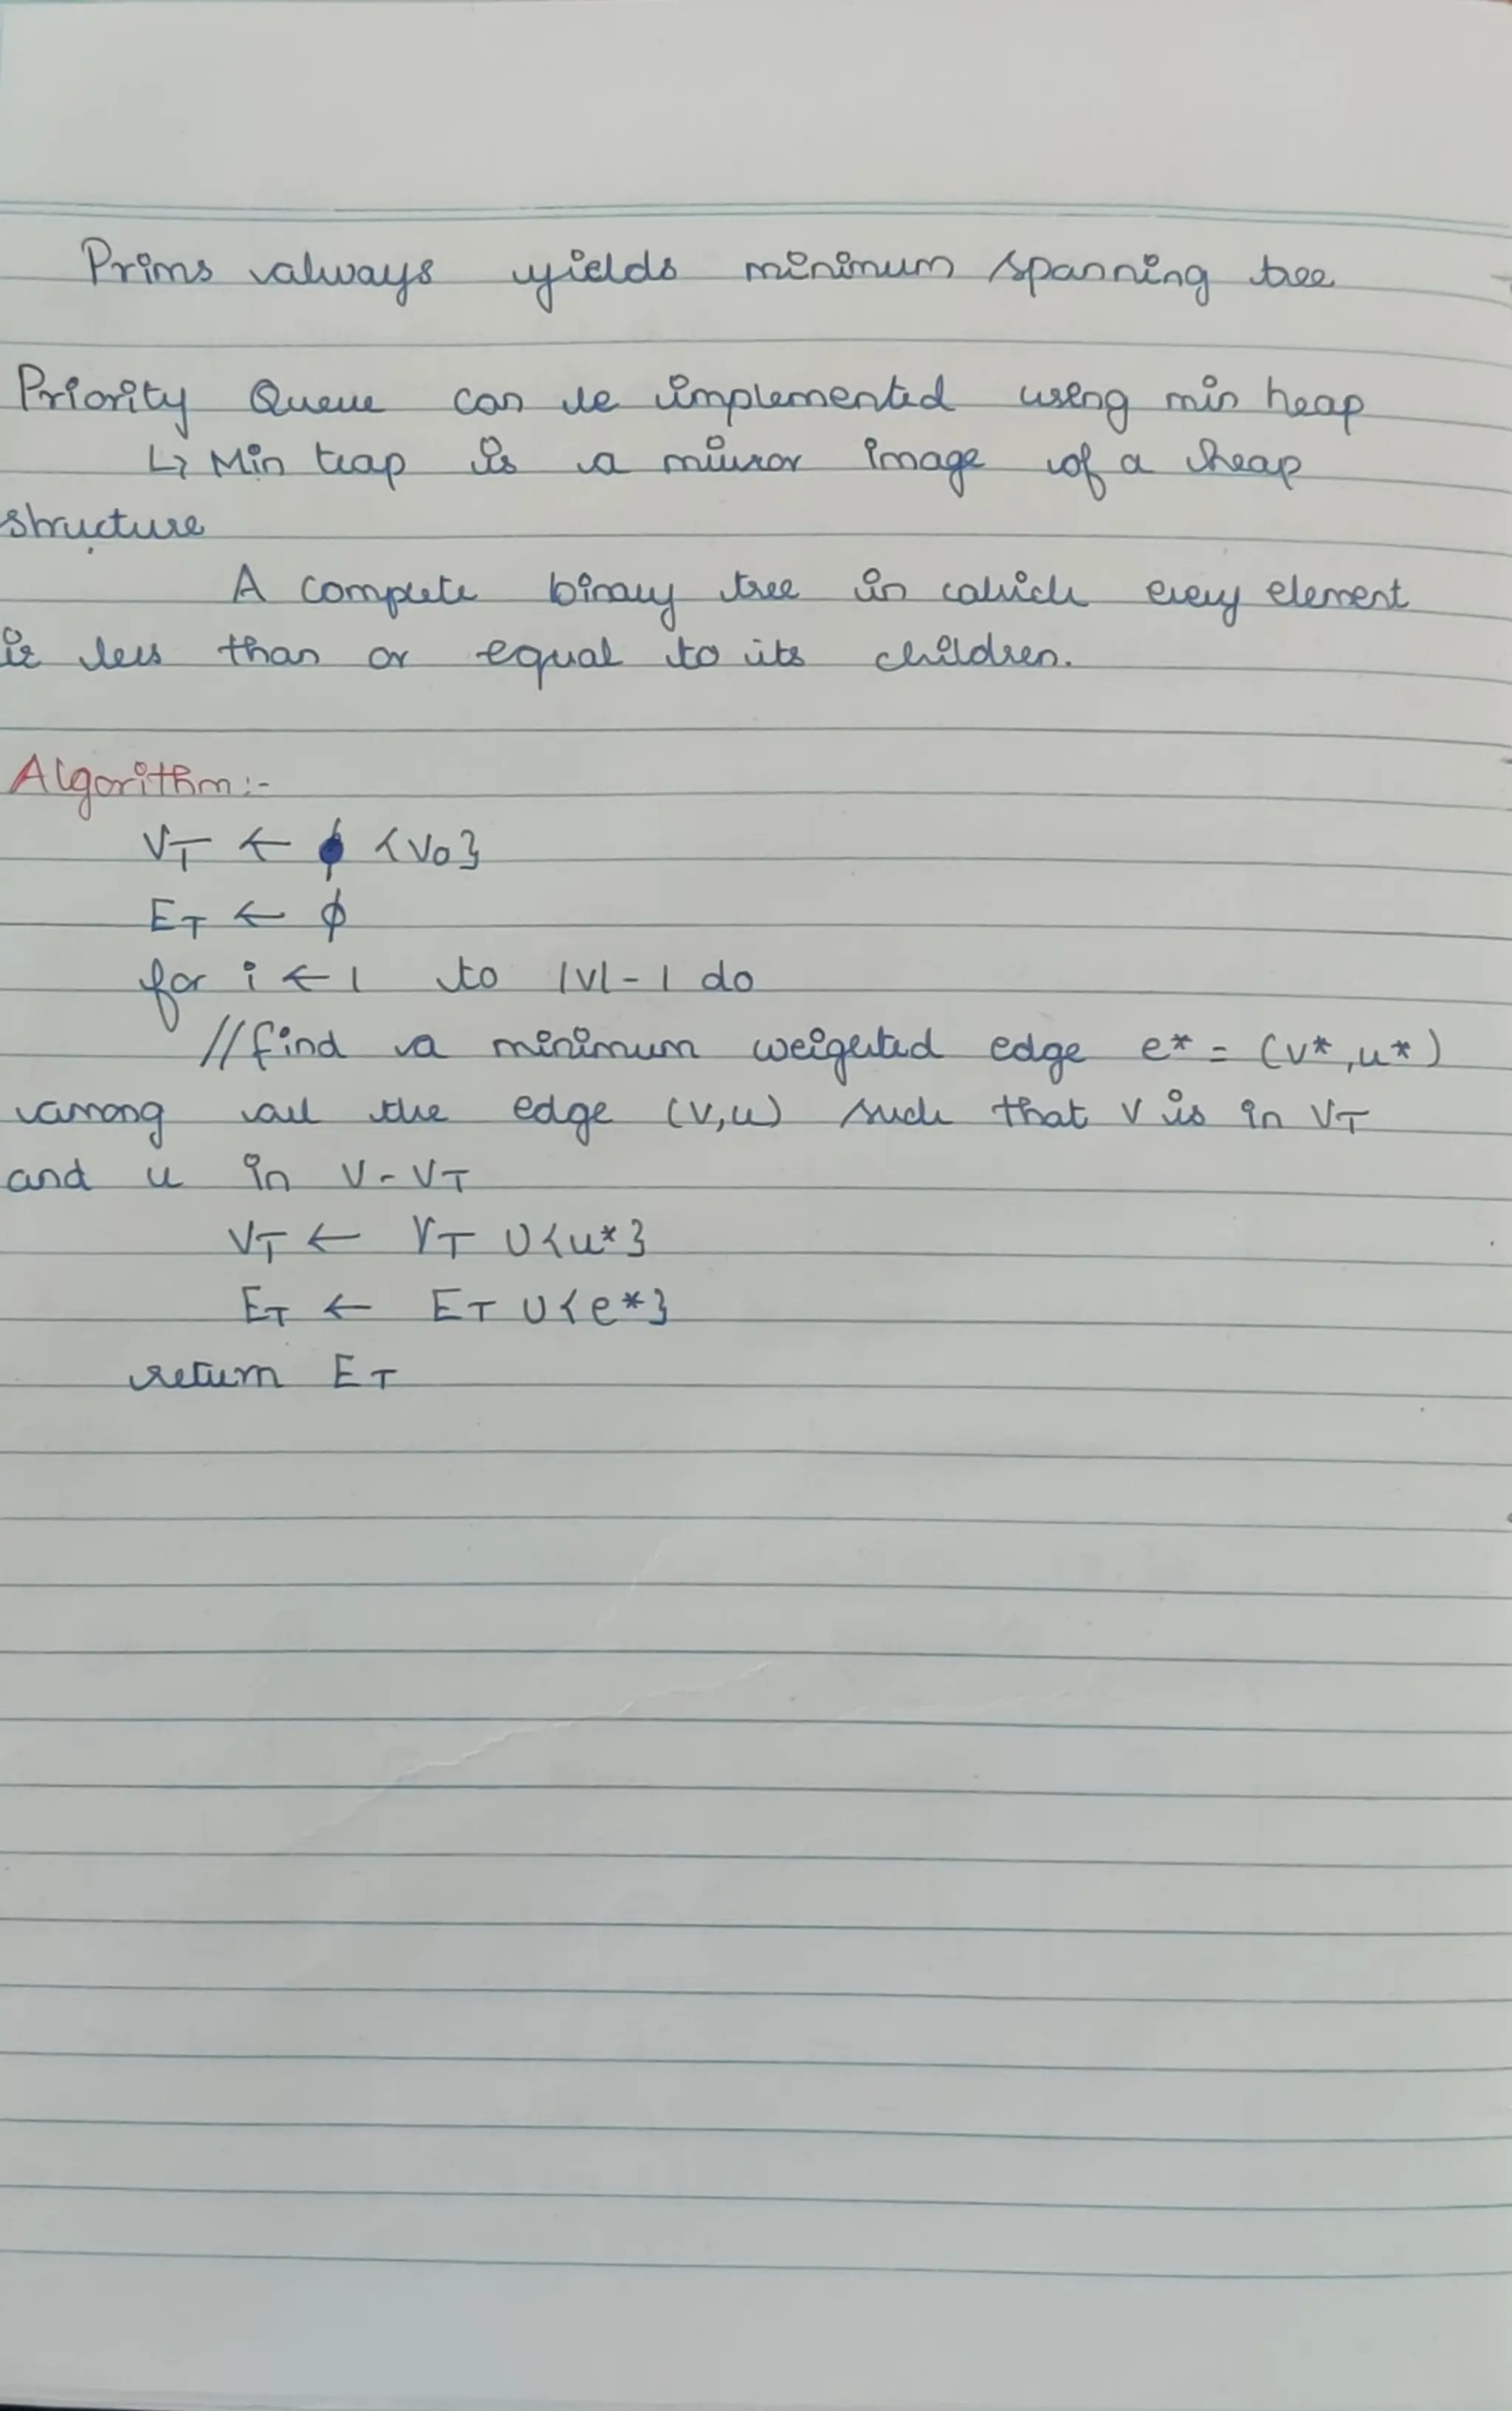 Prims always yields minimum spanning tree
Priority Queue can be implemented using min heap
↳ Min heap is a mirror image of a heap
structure
A complete binary tree in which every element
is less than or equal to its children.
Algorithm:-
V_T ← {v0}
E_T ← ϕ
for i ← 1 to |V| - 1 do
//find a minimum weighted edge e* = (v*, u*)
among all the edge (v,u) such that v is in V_T
and u in V - V_T
V_T ← V_T ∪ {u*}
E_T ← E_T ∪ {e*}
return E_T